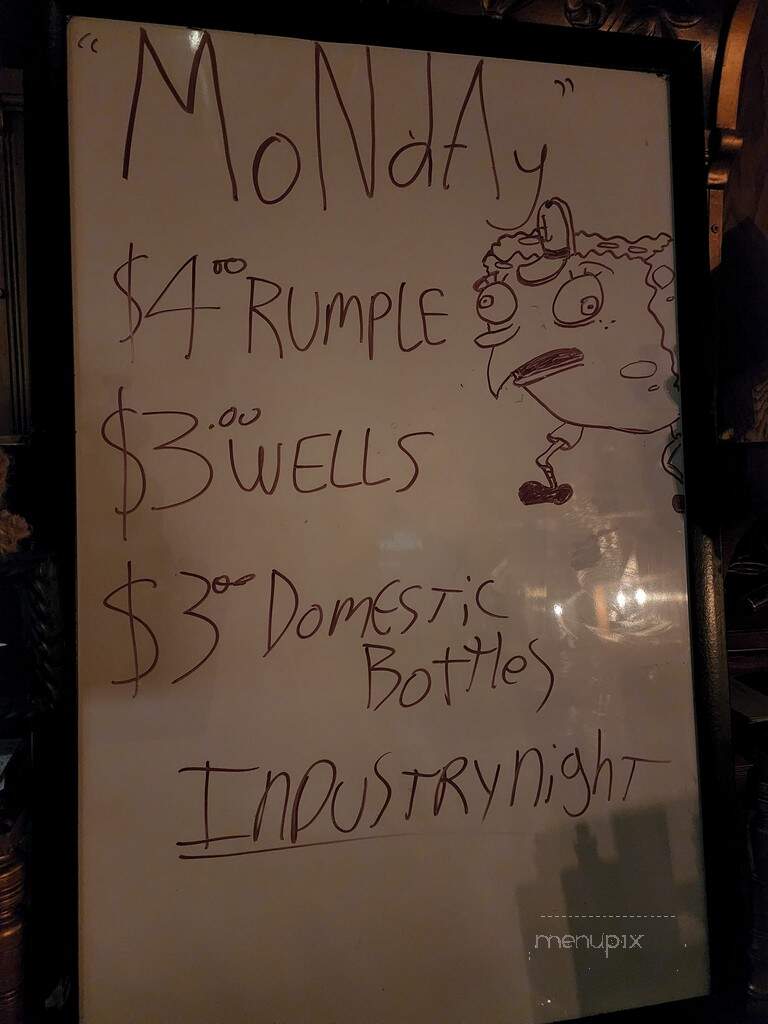 "MoNdAy"
$4.00 RUMPLE
$3.00 WELLS
$3.00 DomESTiC
BottleS
InDUSTRY night
menupix